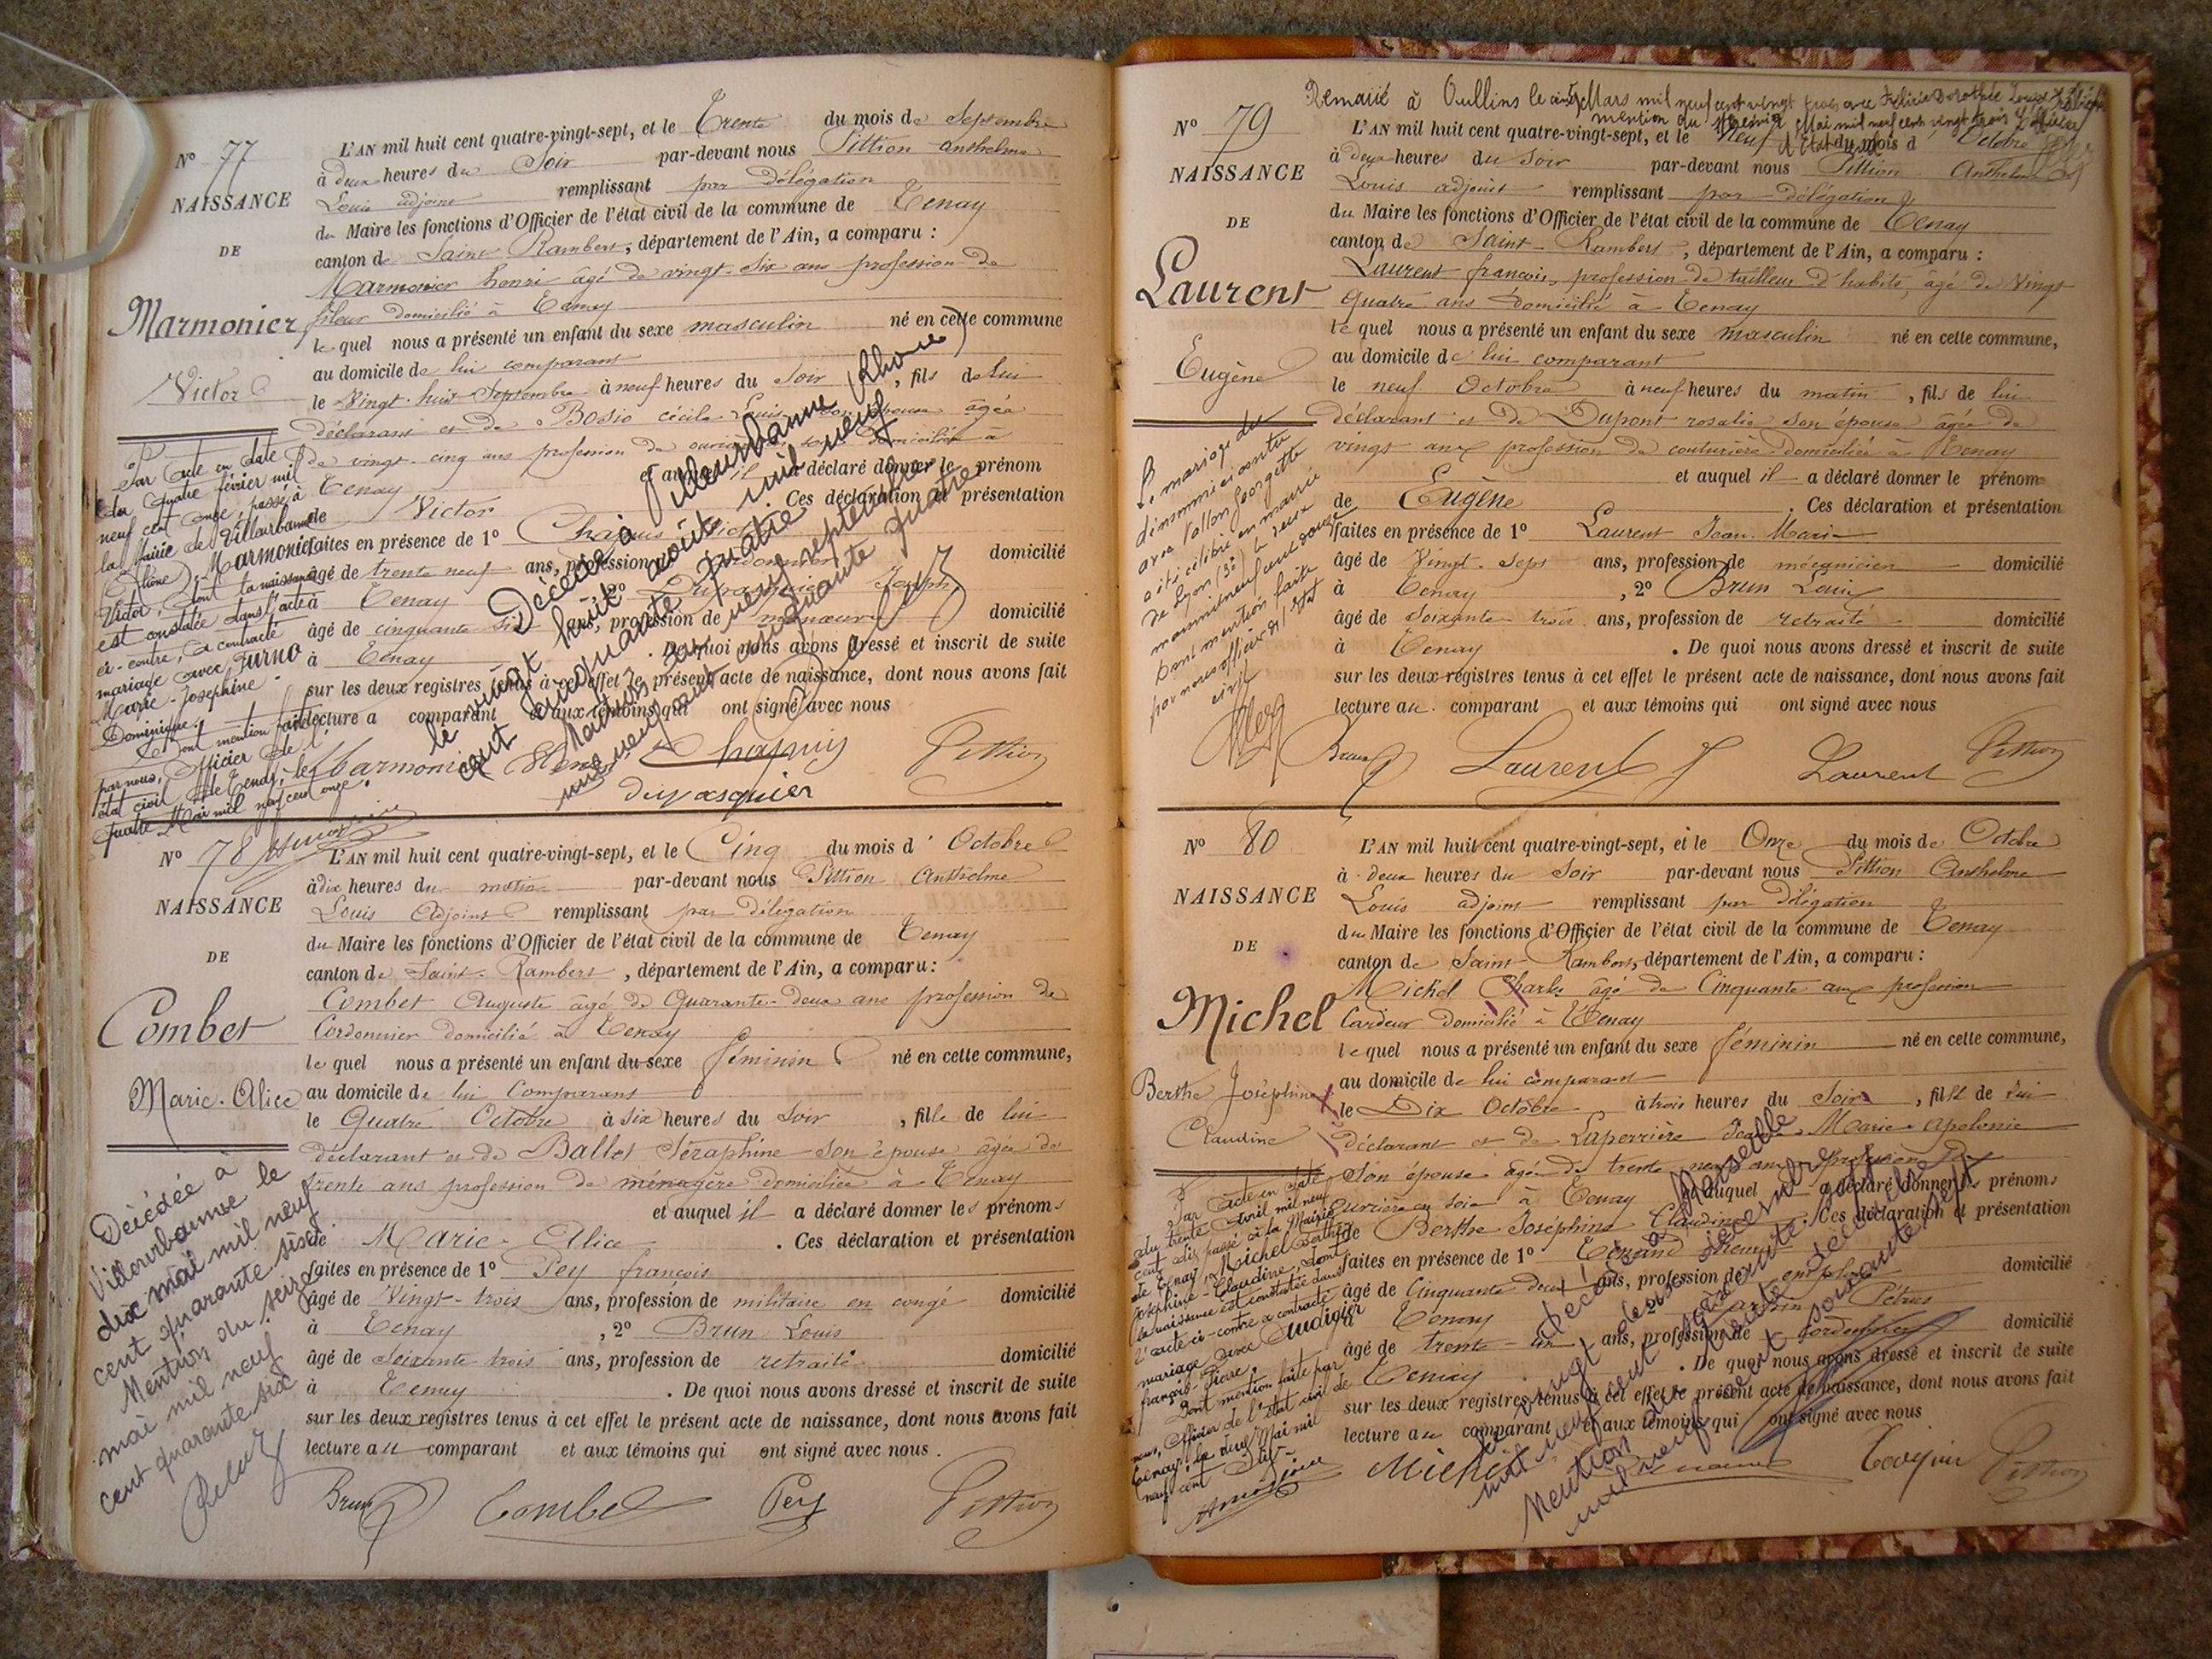 N° 77
NAISSANCE
DE
Marmonier
Victor
L'AN mil huit cent quatre-vingt-sept, et le Trente du mois de Septembre
à deux heures du Soir par-devant nous Pittion Anthelme
Louis adjoint remplissant par délégation
du Maire les fonctions d'Officier de l'état civil de la commune de Tenay
canton de Saint-Rambert, département de l'Ain, a comparu :
Marmonier henri âgé de vingt-six ans profession de
fileur domicilié à Tenay
le quel nous a présenté un enfant du sexe masculin né en cette commune
au domicile de lui comparant
le Vingt-huit Septembre à neuf heures du Soir, fils de lui
déclarant et de Bosio cécile Louise son épouse âgée
de vingt-cinq ans profession de ouvrière domiciliée à
Tenay et auquel il a déclaré donner le prénom
de Victor Ces déclaration et présentation
faites en présence de 1° Chapuis
âgé de trente neuf ans, profession cordonnier domicilié
à Tenay, 2° Dupasquier Joseph
âgé de cinquante six ans, profession de manœuvre domicilié
à Tenay. De quoi nous avons dressé et inscrit de suite
sur les deux registres tenus à cet effet le présent acte de naissance, dont nous avons fait
lecture a comparant et aux témoins qui ont signé avec nous
Marmonier Henri Chapuis Pittion
dupasquier
Par acte en date
du quatre février mil
neuf cent onze, passé à
la Mairie de Villeurbanne
(Rhône), Marmonier
Victor, dont la naissance
est constatée dans l'acte
ci-contre, a contracté
mariage avec Furno
Marie-Josephine-
Dominique.
Dont mention faite
par nous, Officier de l'
état civil de Tenay, le
quatre Mai mil neuf cent onze.
Décédé à Villeurbanne (Rhône)
le vingt huit août mil neuf
cent cinquante quatre
Mention du neuf septembre
mil neuf cent cinquante quatre
N° 78
NAISSANCE
DE
Combet
Marie-Alice
L'AN mil huit cent quatre-vingt-sept, et le Cinq du mois d'Octobre
à dix heures du matin par-devant nous Pittion Anthelme
Louis Adjoint remplissant par délégation
du Maire les fonctions d'Officier de l'état civil de la commune de Tenay
canton de Saint-Rambert, département de l'Ain, a comparu :
Combet Auguste âgé de Quarante-deux ans profession de
Cordonnier domicilié à Tenay
le quel nous a présenté un enfant du sexe féminin né en cette commune,
au domicile de lui Comparant
le Quatre Octobre à six heures du soir, fille de lui
déclarant et de Ballet Séraphine son épouse âgée de
trente ans profession de ménagère domiciliée à Tenay
et auquel il a déclaré donner les prénoms
de Marie-Alice. Ces déclaration et présentation
faites en présence de 1° Pey françois
âgé de Vingt-trois ans, profession de militaire en congé domicilié
à Tenay, 2° Brun Louis
âgé de Soixante-trois ans, profession de retraité domicilié
à Tenay. De quoi nous avons dressé et inscrit de suite
sur les deux registres tenus à cet effet le présent acte de naissance, dont nous avons fait
lecture au comparant et aux témoins qui ont signé avec nous.
Brun Combet Pey Pittion
Décédée à
Villeurbanne le
dix mai mil neuf
cent quarante six
Mention du seize
mai mil neuf
cent quarante six
Remarié à Oullins le cinq Mars mil neuf cent vingt trois avec Félicie Dorothée Louise
mention du premier Mai mil neuf cent vingt trois L'officier
d'Etat civil
N° 79
NAISSANCE
DE
Laurent
Eugène
L'AN mil huit cent quatre-vingt-sept, et le Neuf du mois d'Octobre
à deux heures du soir par-devant nous Pittion Anthelme
Louis adjoint remplissant par délégation
du Maire les fonctions d'Officier de l'état civil de la commune de Tenay
canton de Saint-Rambert, département de l'Ain, a comparu :
Laurent françois, profession de tailleur d'habits, âgé de Vingt
quatre ans domicilié à Tenay
le quel nous a présenté un enfant du sexe masculin né en cette commune,
au domicile de lui comparant
le neuf Octobre à neuf heures du matin, fils de lui
déclarant et de Dupont rosalie son épouse âgée de
vingt ans profession de couturière domiciliée à Tenay
et auquel il a déclaré donner le prénom
de Eugène. Ces déclaration et présentation
faites en présence de 1° Laurent Jean-Marie
âgé de Vingt-sept ans, profession de mécanicien domicilié
à Tenay, 2° Brun Louis
âgé de soixante-trois ans, profession de retraité domicilié
à Tenay. De quoi nous avons dressé et inscrit de suite
sur les deux registres tenus à cet effet le présent acte de naissance, dont nous avons fait
lecture au comparant et aux témoins qui ont signé avec nous
Brun Laurent Laurent Pittion
Le mariage du
dénommé ci-contre
avec Vallon Georgette
a été célébré en mairie
de Lyon (3e) le deux
mars mil neuf cent douze
Dont mention faite
par nous officier de l'état
civil
N° 80
NAISSANCE
DE
Michel
Berthe Joséphine
Claudine
L'AN mil huit cent quatre-vingt-sept, et le Onze du mois de Octobre
à deux heures du Soir par-devant nous Pittion Anthelme
Louis adjoint remplissant par délégation
du Maire les fonctions d'Officier de l'état civil de la commune de Tenay
canton de Saint-Rambert, département de l'Ain, a comparu :
Michel Charles âgé de Cinquante ans profession
Cardeur domicilié à Tenay
le quel nous a présenté un enfant du sexe féminin né en cette commune,
au domicile de lui comparant
le Dix Octobre à trois heures du Soir, fille de lui
déclarant et de Laperrière Marie-Apolonie
son épouse âgée de trente-neuf ans profession
ouvrière en soie à Tenay et auquel a déclaré donner les prénoms
de Berthe Joséphine Claudine. Ces déclaration et présentation
faites en présence de 1°
âgé de Cinquante deux ans, profession de employé domicilié
à Tenay 2° Pétrus
âgé de trente-un ans, profession de cordonnier domicilié
Tenay. De quoi nous avons dressé et inscrit de suite
sur les deux registres tenus à cet effet le présent acte de naissance, dont nous avons fait
lecture au comparant et aux témoins qui ont signé avec nous
Michel Pittion
Par acte en date
du trente Avril mil neuf
cent dix passé à la Mairie
de Tenay, Michel Berthe
Joséphine-Claudine, dont
la naissance est constatée dans
l'acte ci-contre a contracté
mariage avec Audigier
françois-Pierre.
Dont mention faite par
nous, Officier de l'état civil de
Tenay, le deux Mai mil
neuf cent dix.
Décédée à Marseille
le vingt deux décembre
mil neuf cent soixante sept
Mention du trente décembre
mil neuf cent soixante sept